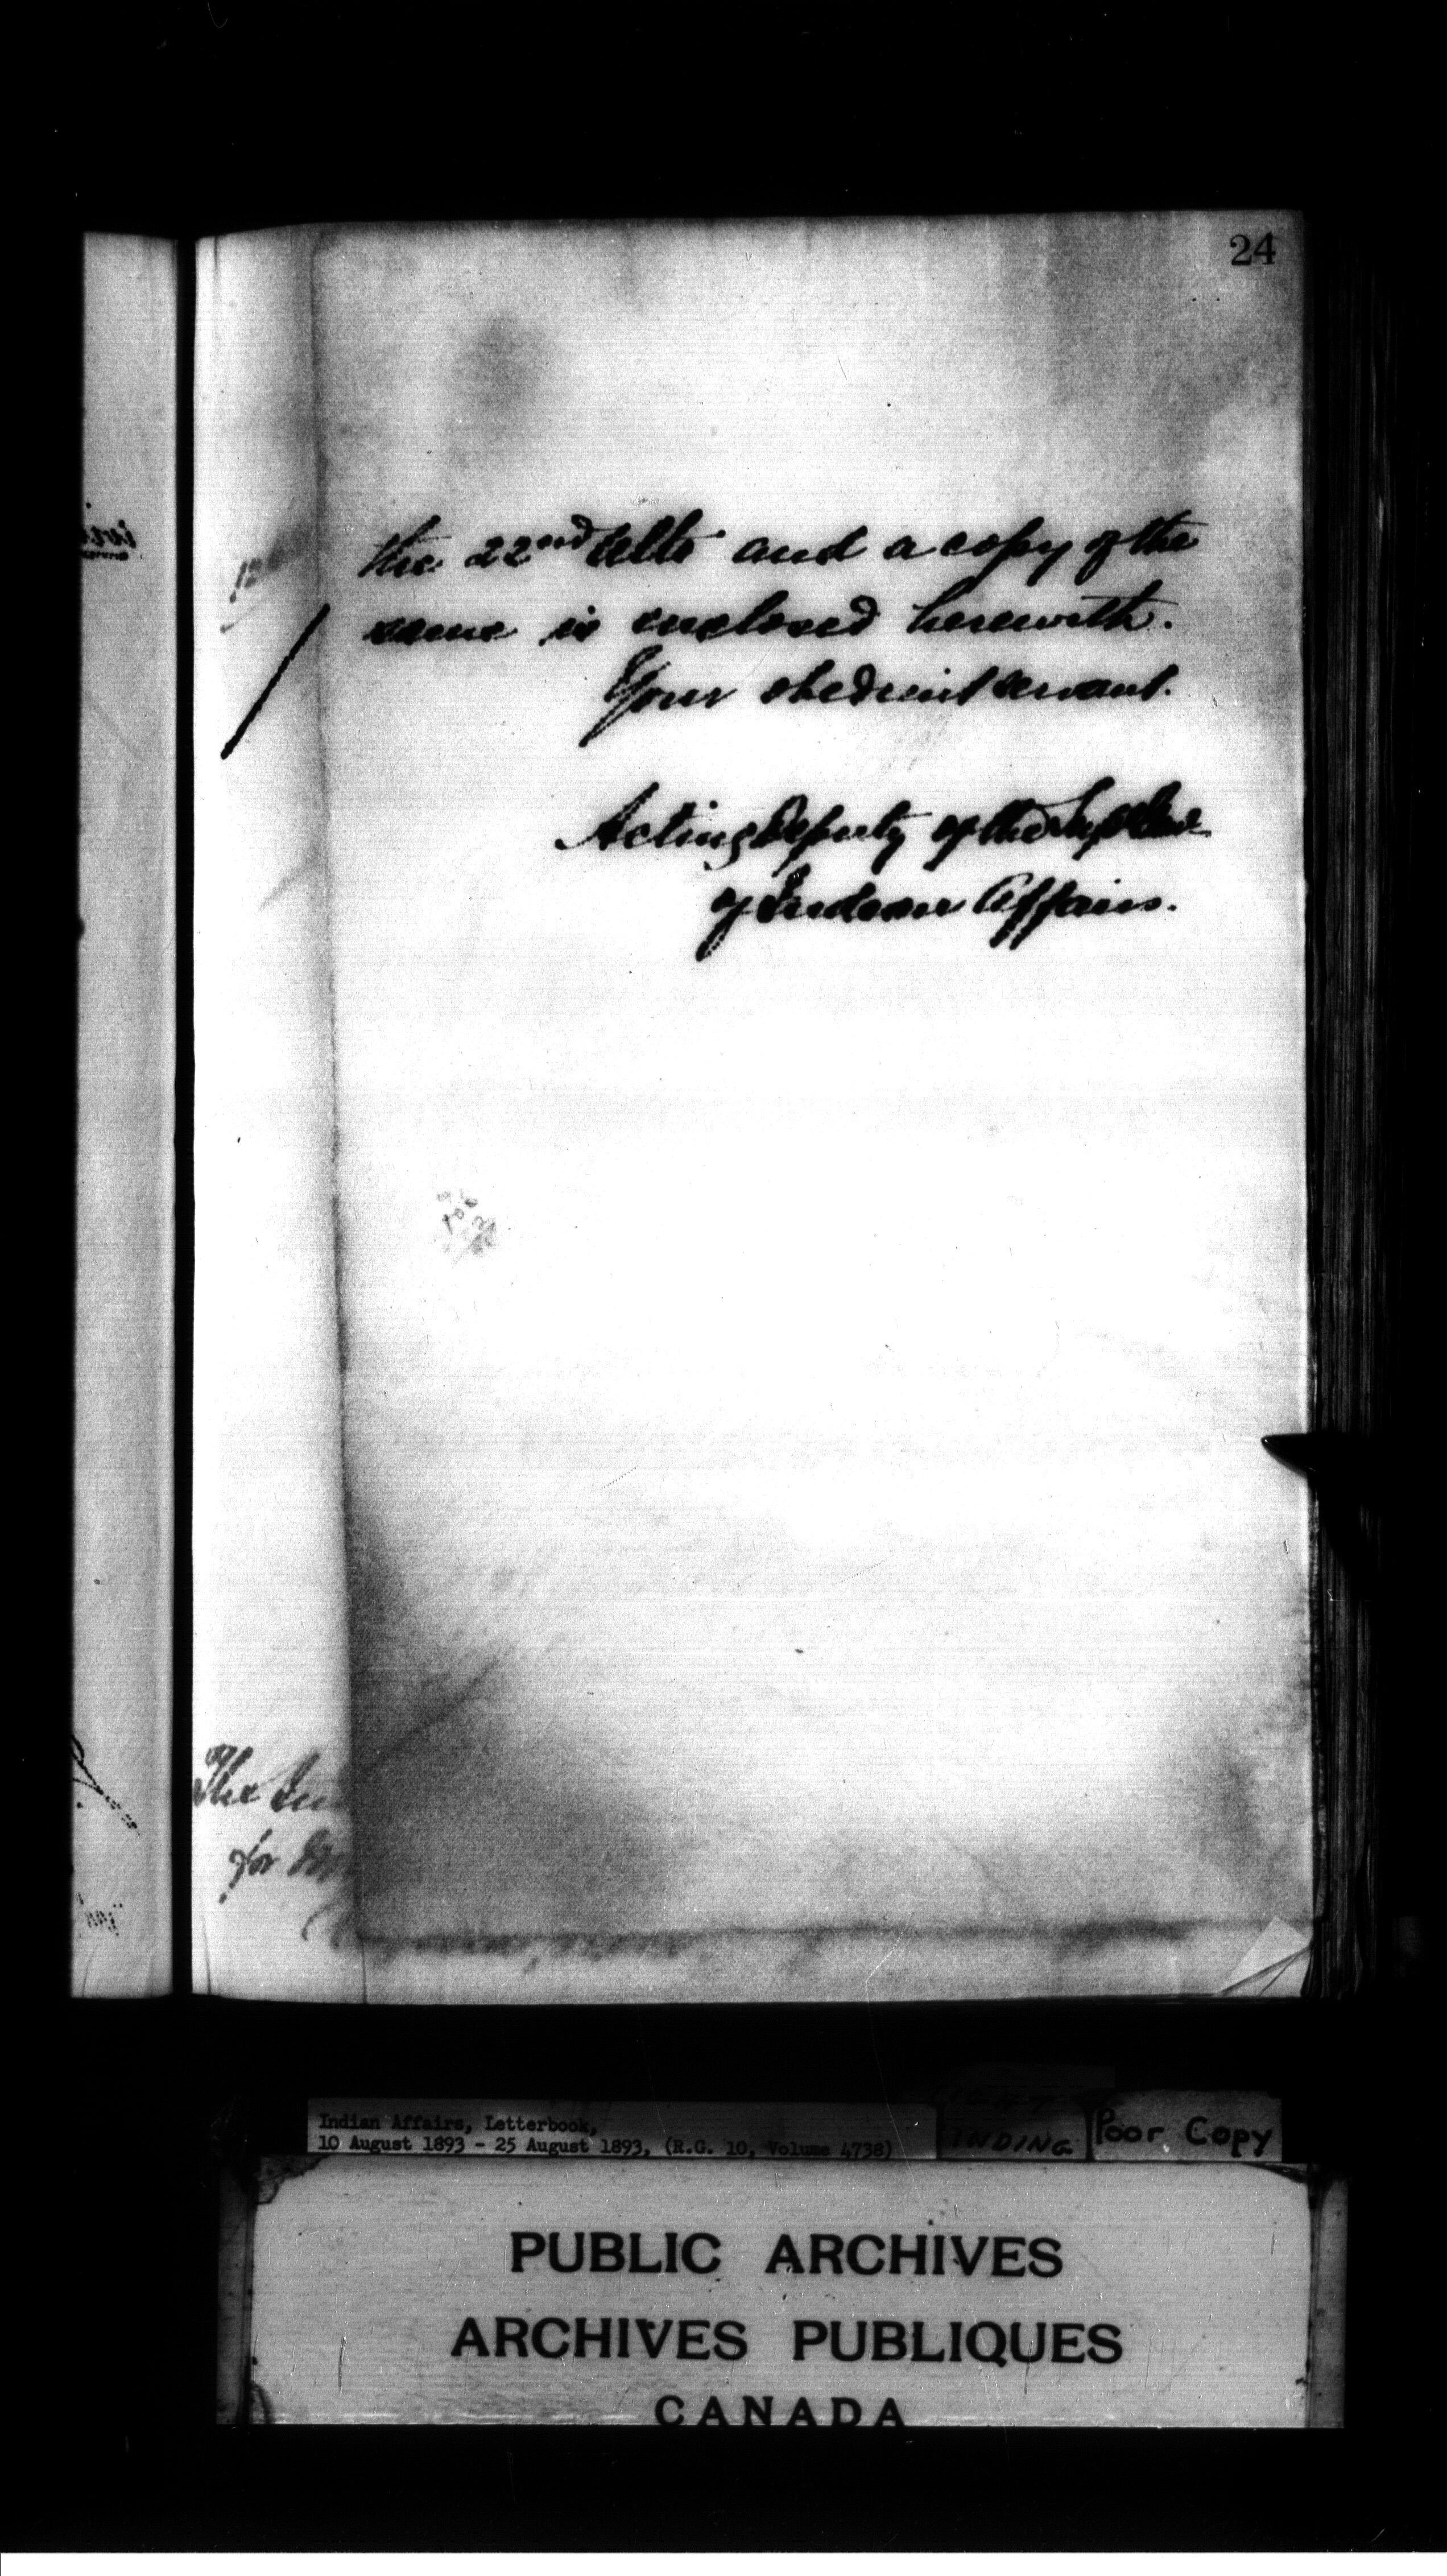 24
the 22nd Ulto and a copy of the
same is enclosed herewith.
Your obedient servant.
Acting Deputy of the Supt Genl
of Indian Affairs.
The
for
Indian Affairs, Letterbook,
10 August 1893 - 25 August 1893, (R.G. 10, Volume 4738)
BINDING
Poor Copy
PUBLIC ARCHIVES
ARCHIVES PUBLIQUES
CANADA